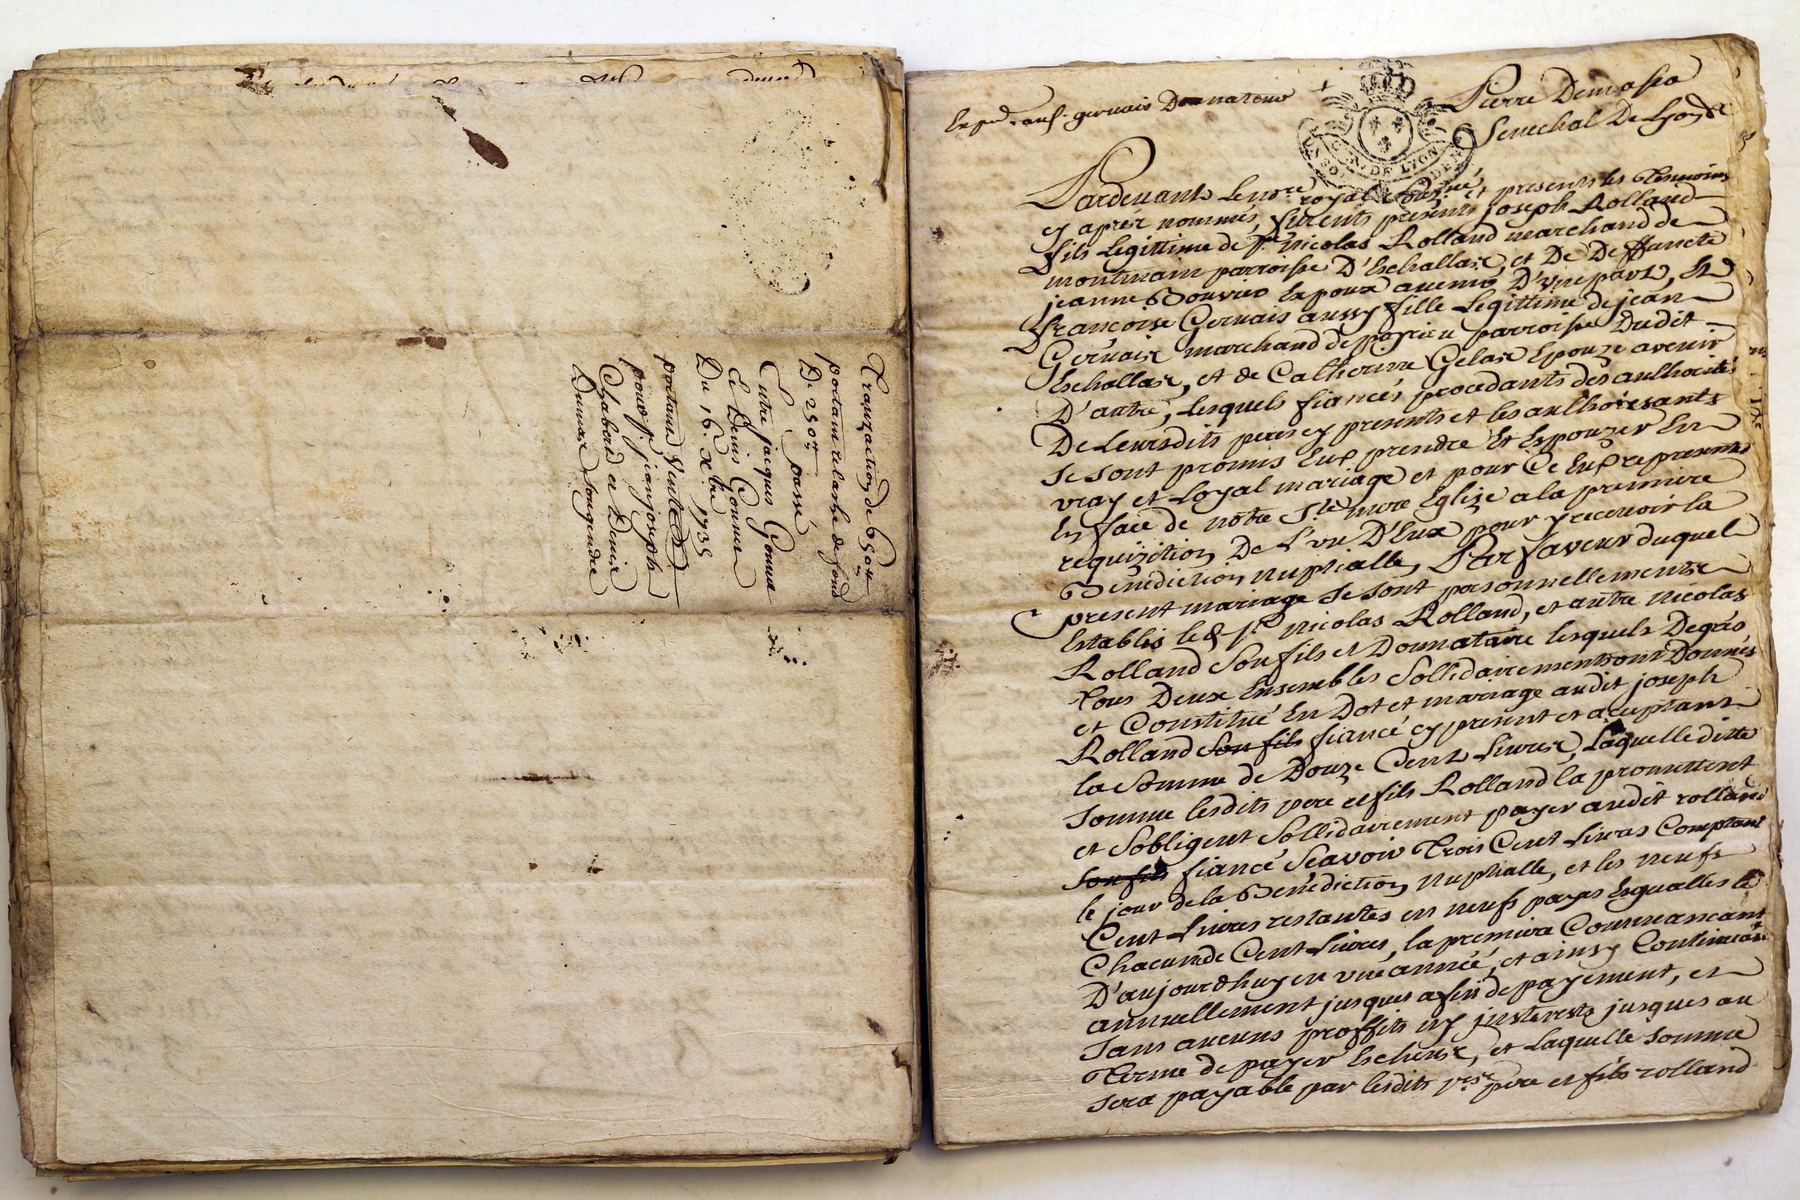 Tranzaction de 650#
portant relache de fond
De 250#
passé
Entre jacques Gonnet
et Denis Gonnet
Du 16. Xbre 1735
portant vente
pour jean joseph
Chabord et Denix
Dumas Songendre
Exped. gervais Donnateur
Pierre Demasso
Senechal De Lyon &
GN. DE LYON
Pardevant le nore royal soussigné, et presents les Temoins
cy apres nommés, furents presents joseph Rolland
fils Legittime de sr. Nicolas Rolland marchand de
montmain parroisse D'Eschallas, et De Deffuncte
jeanne Bouvier Epoux avenir D'une part, Et
francoise Gervais aussy fille Legittime de jean
Gervais marchand de parroisse Dudit
Eschallas, et de Catherine Gelas Epouze avenir
D'autre, lesquels fiancés procedants des authorités
De leursdits peres cy presents et les authorisants
se sont promis Eux prendre Et Espouzer En
vray et Loyal mariage et pour Ce Eux representer
En face de notre Ste mere Eglize a la premiere
requizition De L'un D'Eux pour y recevoir la
Benediction Nuptialle, Par faveur duquel
present mariage se sont personnellements
Establis led. sr. Nicolas Rolland, et autre Nicolas
Rolland Son fils et Donnataire lesquels De gré
Tous Deux Ensembles Sollidairement ont Donnés
et Constitué En Dot et mariage audit joseph
Rolland Son fils fiancé cy present et aceptant
la Somme de Douze Cent Livres, Laquelle ditte
somme lesdits pere et fils Rolland la promettent
et Sobligent Sollidairement payer audit rolland
Son fils fiancé Scavoir Trois Cent Livres Comptant
le jour de la Benediction Nuptialle, et les neufs
Cent Livres restantes en neufs payes Esgualles de
Chacune de Cent Livres, la premiere Commencant
D'aujourdhuy en une année, et ainsy Continuant
annuellement jusques a fin de payement, et
sans aucuns proffits ny jnterests jusques au
Terme de payer Escheus, et Laquelle somme
sera payable par lesdits pere et fils rolland